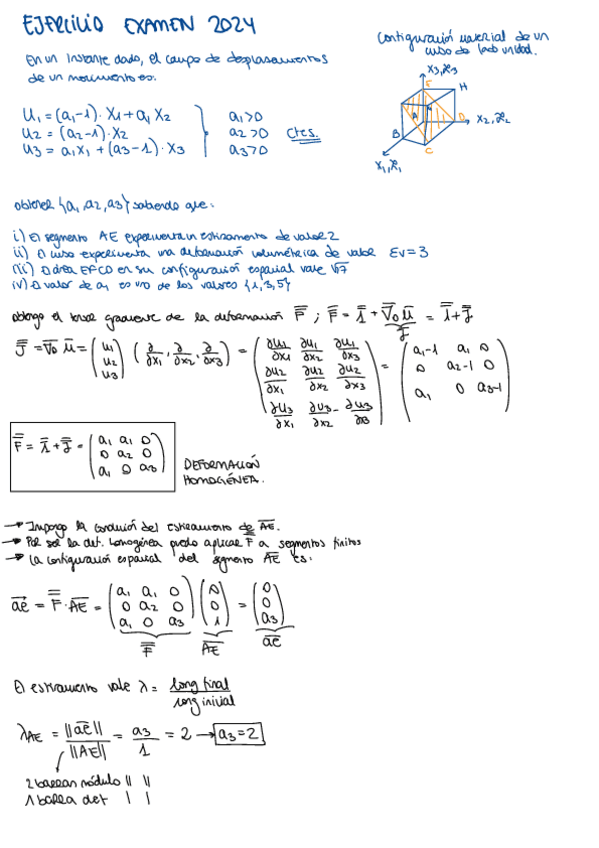 EJERCICIO EXAMEN 2024
Configuración material de un
cubo de lado unidad.
En un instante dado, el campo de desplazamientos
de un movimiento es:
X3, x3
E
H
A
D
X2, x2
B
C
X1, x1
U1 = (a1-1)· X1 + a1 X2
U2 = (a2-1)· X2
U3 = a1X1 + (a3-1)· X3
a1>0
a2>0 Ctes.
a3>0
obtener {a1, a2, a3} sabiendo que:
i) El segmento AE experimenta un estiramiento de valor 2
ii) El cubo experimenta una deformación volumétrica de valor Ev=3
iii) El área EFCD en su configuración espacial vale √17
iv) El valor de a1 es uno de los valores {1,3,5}
obtengo el tensor gradiente de la deformación F ; F = 1 + ∇0 u = 1 + J
J
J = ∇0 u = (u1 u2 u3) (∂/∂x1, ∂/∂x2, ∂/∂x3) = (∂u1/∂x1 ∂u1/∂x2 ∂u1/∂x3 = (a1-1 a1 0
∂u2/∂x1 ∂u2/∂x2 ∂u2/∂x3 0 a2-1 0
∂u3/∂x1 ∂u3/∂x2 ∂u3/∂x3) a1 0 a3-1)
F = 1 + J = (a1 a1 0
0 a2 0
a1 0 a3)
DEFORMACIÓN
HOMOGÉNEA.
→ Impongo la condición del estiramiento de AE.
→ Por ser la def. homogénea puedo aplicar F a segmentos finitos
→ La configuración espacial del segmento AE es:
ae = F · AE = (a1 a1 0 (0 = (0
0 a2 0 0 0
a1 0 a3) 1) a3)
F AE ae
El estiramiento vale λ = long final / long inicial
λAE = ||ae|| / ||AE|| = a3 / 1 = 2 → a3=2
2 barras módulo || ||
1 barra det | |